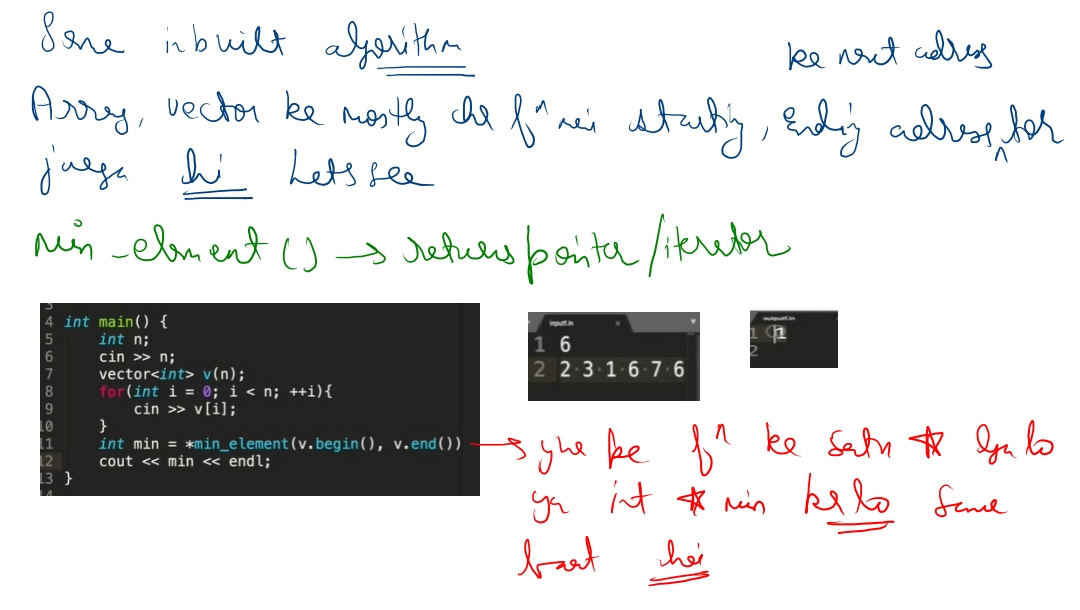 Some inbuilt algorithm
ke next adress
Array, vector ke mostly che fⁿ mei starting, Ending adress ^ ko
juega hi Lets see
min_element () → returns pointer / iterator
3
4 int main() {
5 int n;
6 cin >> n;
7 vector<int> v(n);
8 for(int i = 0; i < n; ++i){
9 cin >> v[i];
10 }
11 int min = *min_element(v.begin(), v.end())
12 cout << min << endl;
13 }
14
inputf.in x
1 6
2 2 3 1 6 7 6
outputf.in
1 1
2
→ yhe pe fⁿ ke sath * lga lo
ya int * min kr lo same
baat hai